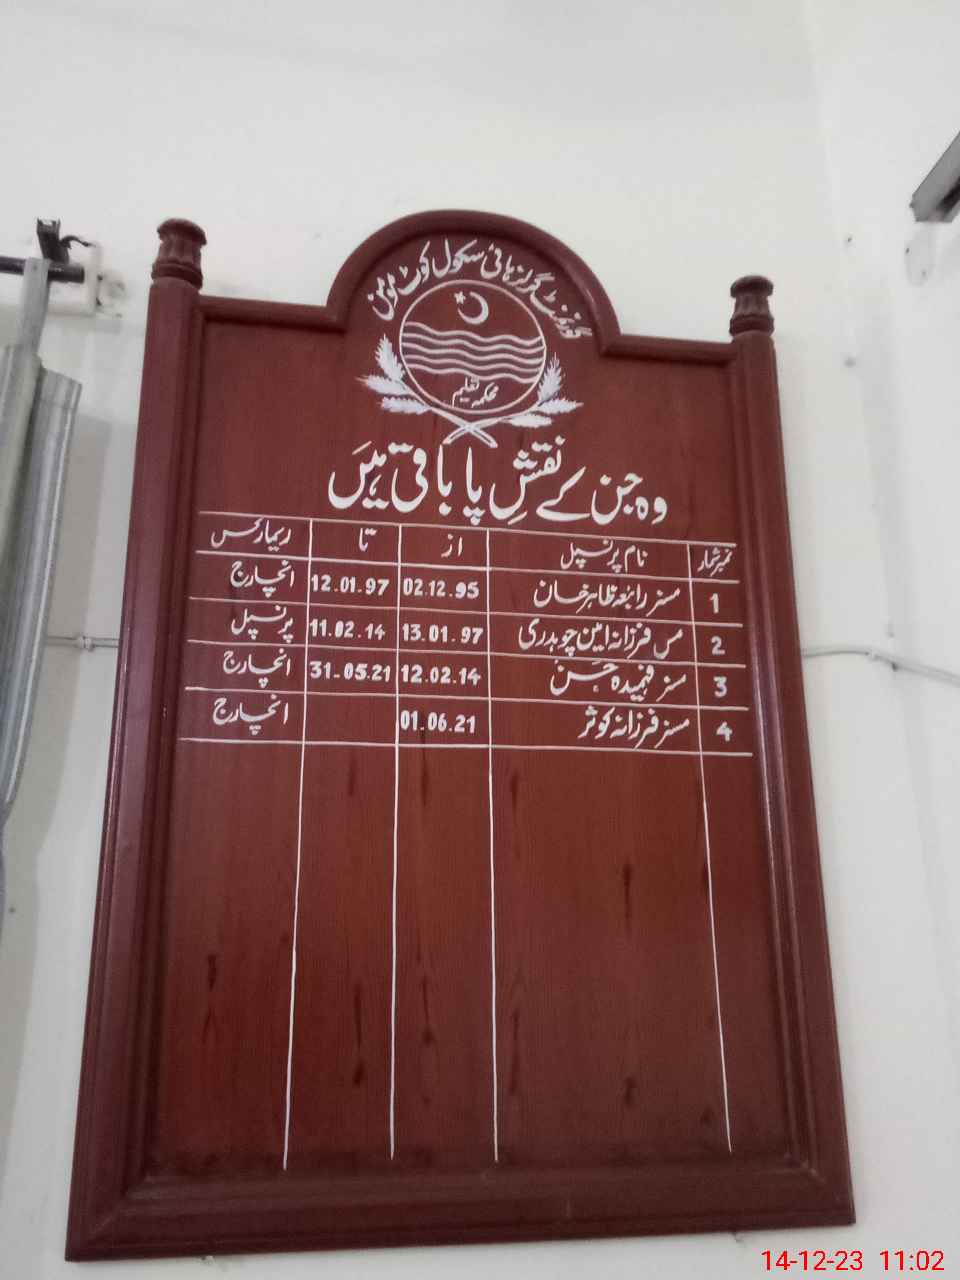 گورنمنٹ گرلز ہائی سکول کوٹ مومن
محکمہ تعلیم
وہ جن کے نقشِ پا باقی ہیں
نمبر شمار نام پرنسپل از تا ریمارکس
1 مسز رابعہ طاہر خان 02.12.95 12.01.97 انچارج
2 مس فرزانہ امین چوہدری 13.01.97 11.02.14 پرنسپل
3 مسز فہمیدہ حسن 12.02.14 31.05.21 انچارج
4 مسز فرزانہ کوثر 01.06.21 انچارج
14-12-23 11:02